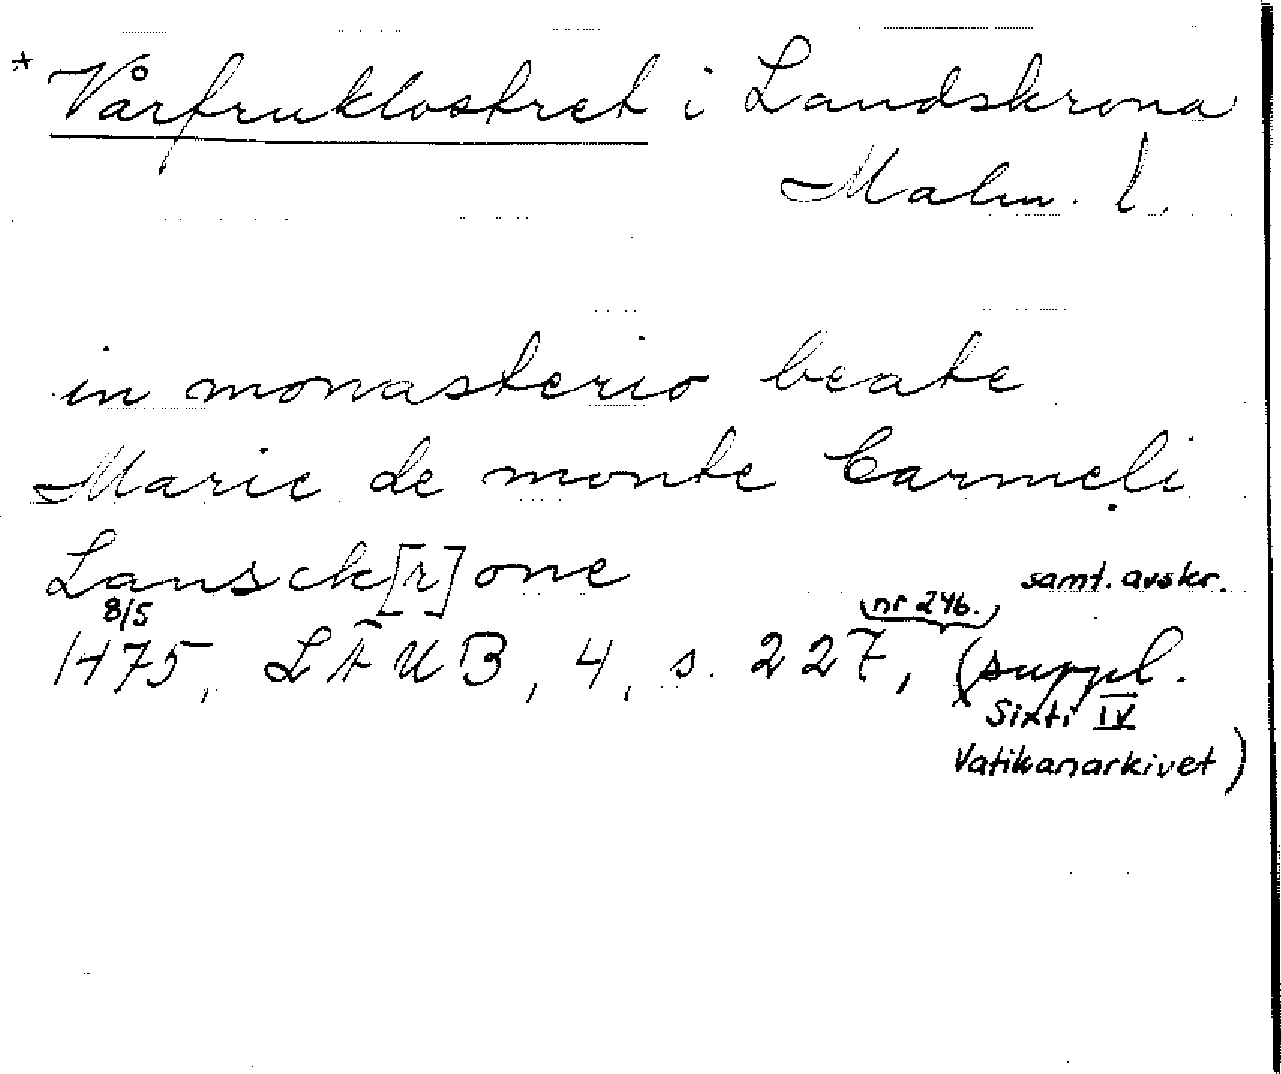 * Vårfruklostret i Landskrona
Malm. l.
in monasterio beate
Marie de monte Carmeli
Lansck[r]one
samt. avskr.
8/5
nr 246.
1475, LÄUB, 4, s. 227, (suppl.
Sixti IV
Vatikanarkivet)